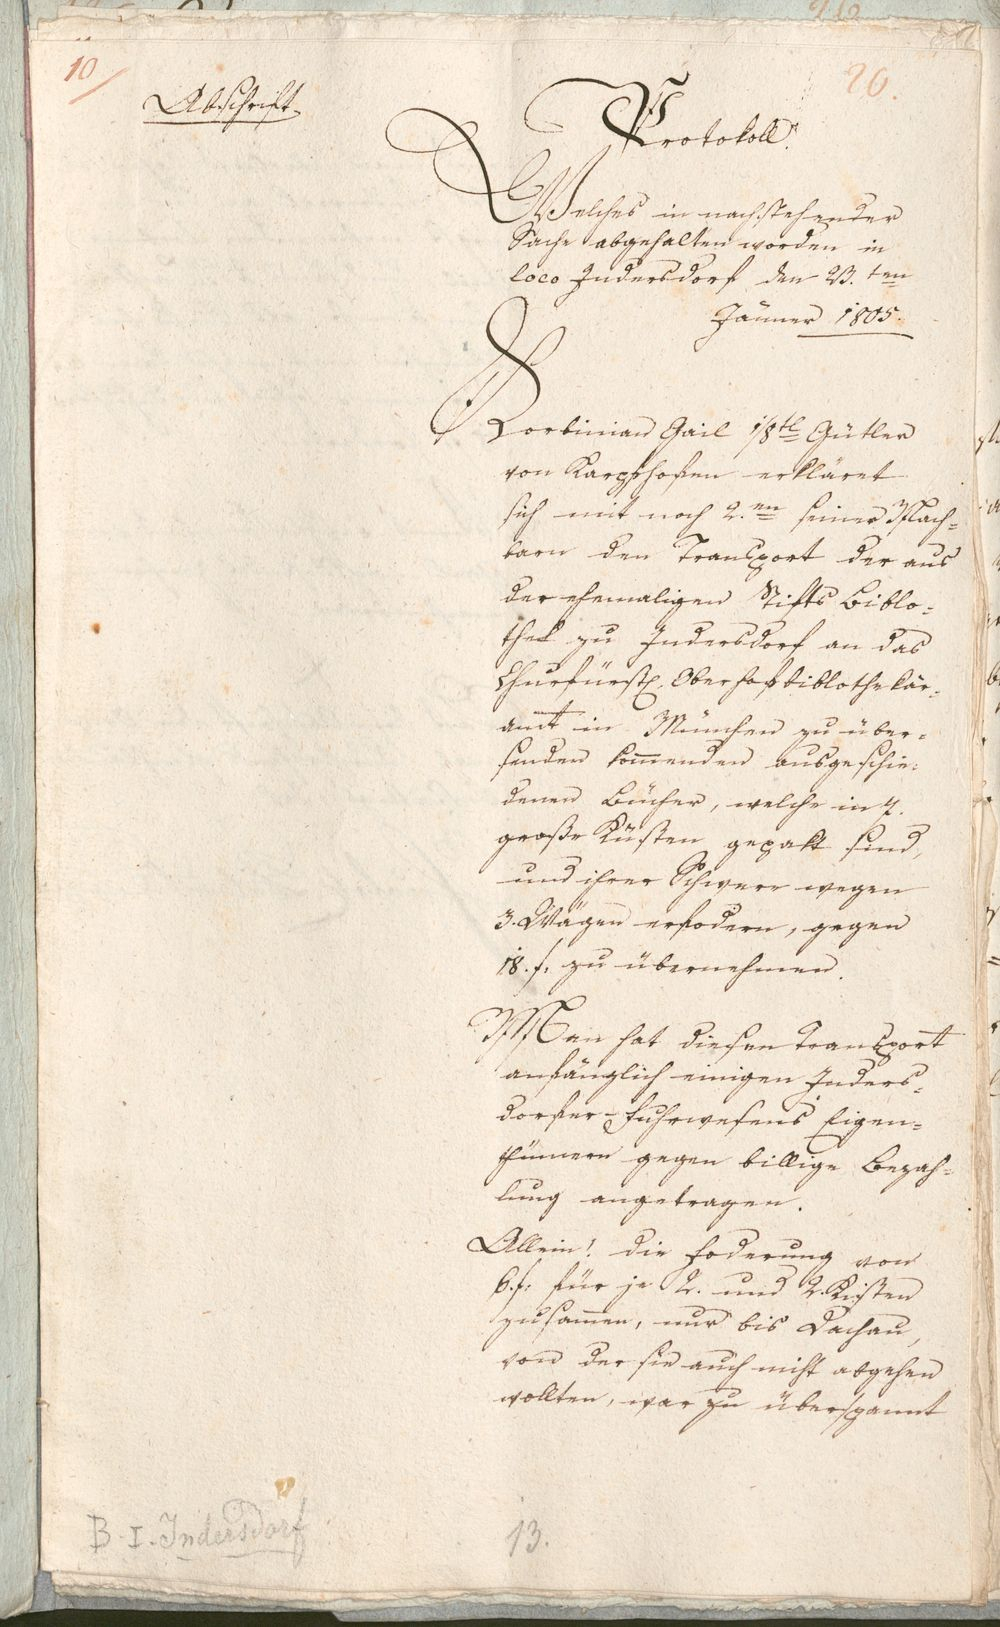 10
26.
Abschrift.
Protokoll.
Welches in nachstehender
Sache abgehalten worden in
loco Indersdorf den 23.ten
Jänner 1805.
Corbinian Gail 1/8tl Gütler
von Karpfhofen erkläret
sich mit noch 2.en seiner Nach=
barn den Transport der aus
der ehemaligen Stifts Biblo=
thek zu Indersdorf an das
Churfürstl. Oberhofbiblothekär=
amt in München zu über=
senden kommenden ausgeschie=
denen Bücher, welche in 7.
große Küsten gepakt sind,
und ihrer Schwere wegen
3. Wägen erfodern, gegen
18. f. zu übernehmen.
Man hat diesen Transport
anfänglich einigen Inders=
dorfer Fuhrwesens Eigen=
thümern gegen billige Bezah=
lung angetragen.
Allein! die Foderung von
6. f. für je 2. und 2. Kisten
zusammen, nur bis Dachau,
von der sie auch nicht abgehen
wollten, war zu überspannt
B. I. Indersdorf
13.